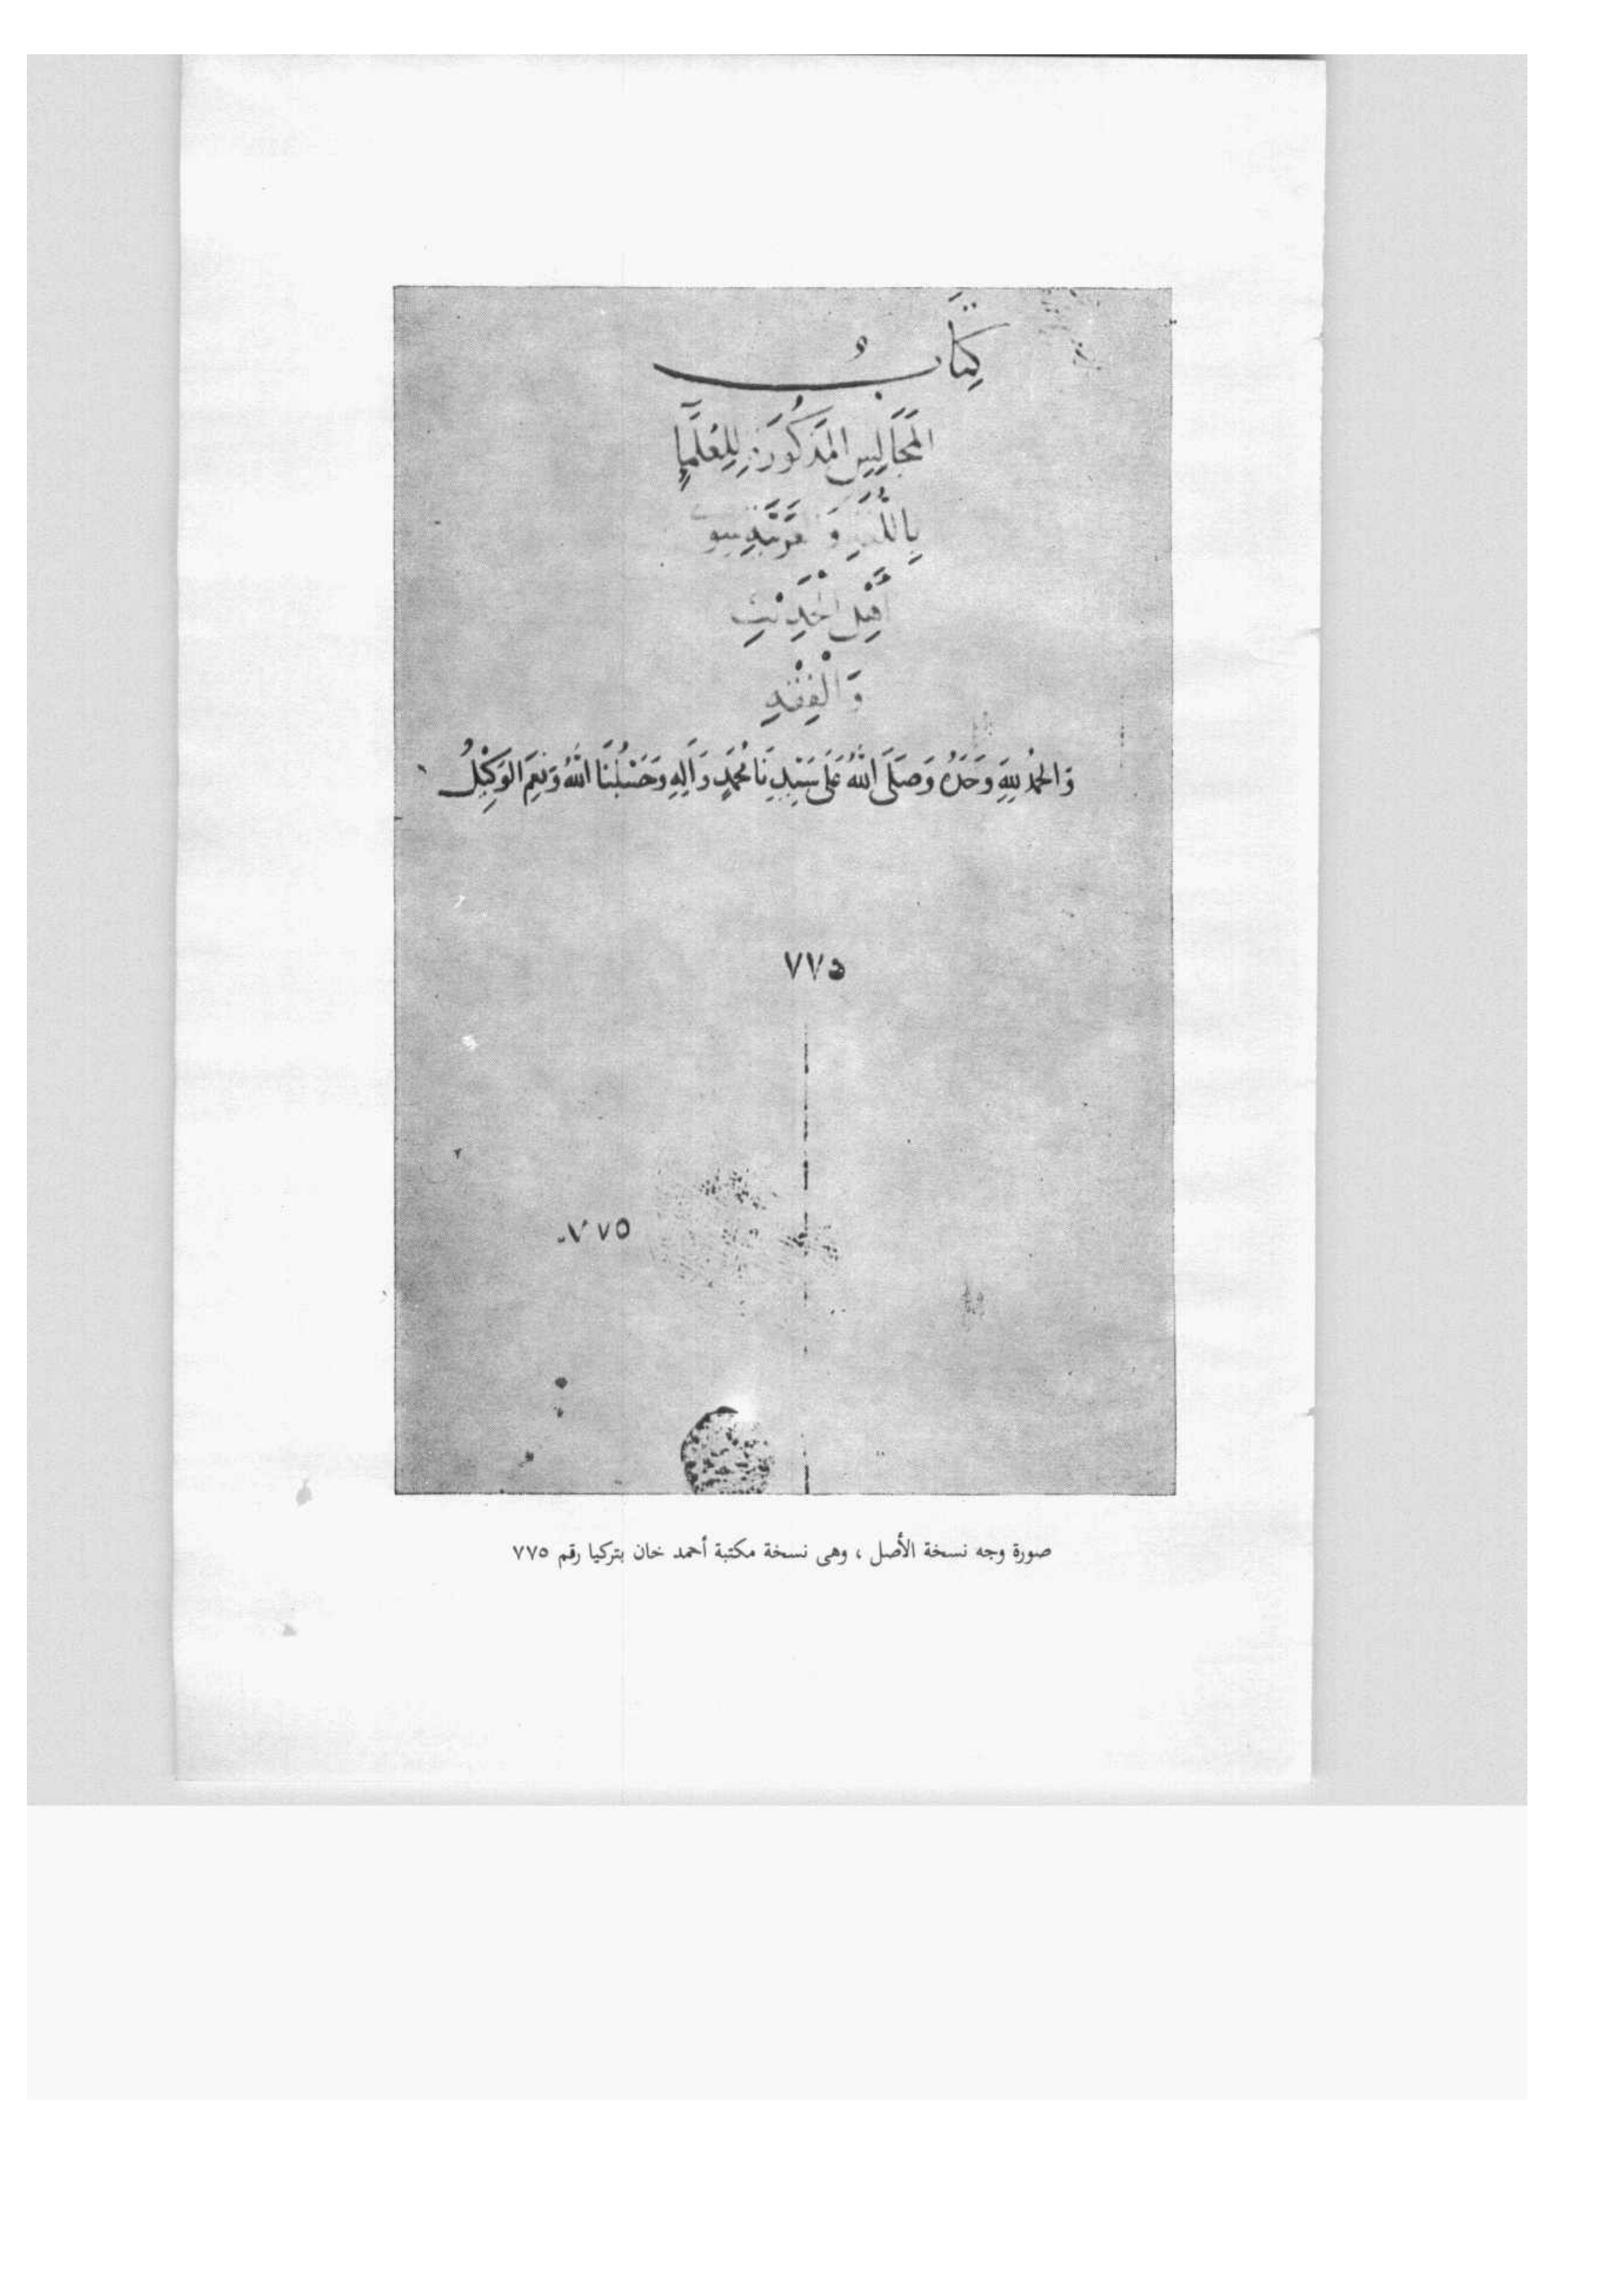 كِتَابُ
المَجَالِسِ المَذْكُورَةِ لِلْعُلَمَاءِ
بِاللُّغَةِ وَ
أَهْلِ الْحَدِيْثِ
وَالْفِقْهِ
وَالحَمْدُ لِلَّهِ وَحْدَهُ وَصَلَّى اللَّهُ عَلَى سَيِّدِنَا مُحَمَّدٍ وَآلِهِ وَحَسْبُنَا اللَّهُ وَنِعْمَ الْوَكِيْلُ
٧٧٥
٧٧٥
صورة وجه نسخة الأصل ، وهى نسخة مكتبة أحمد خان بتركيا رقم ٧٧٥